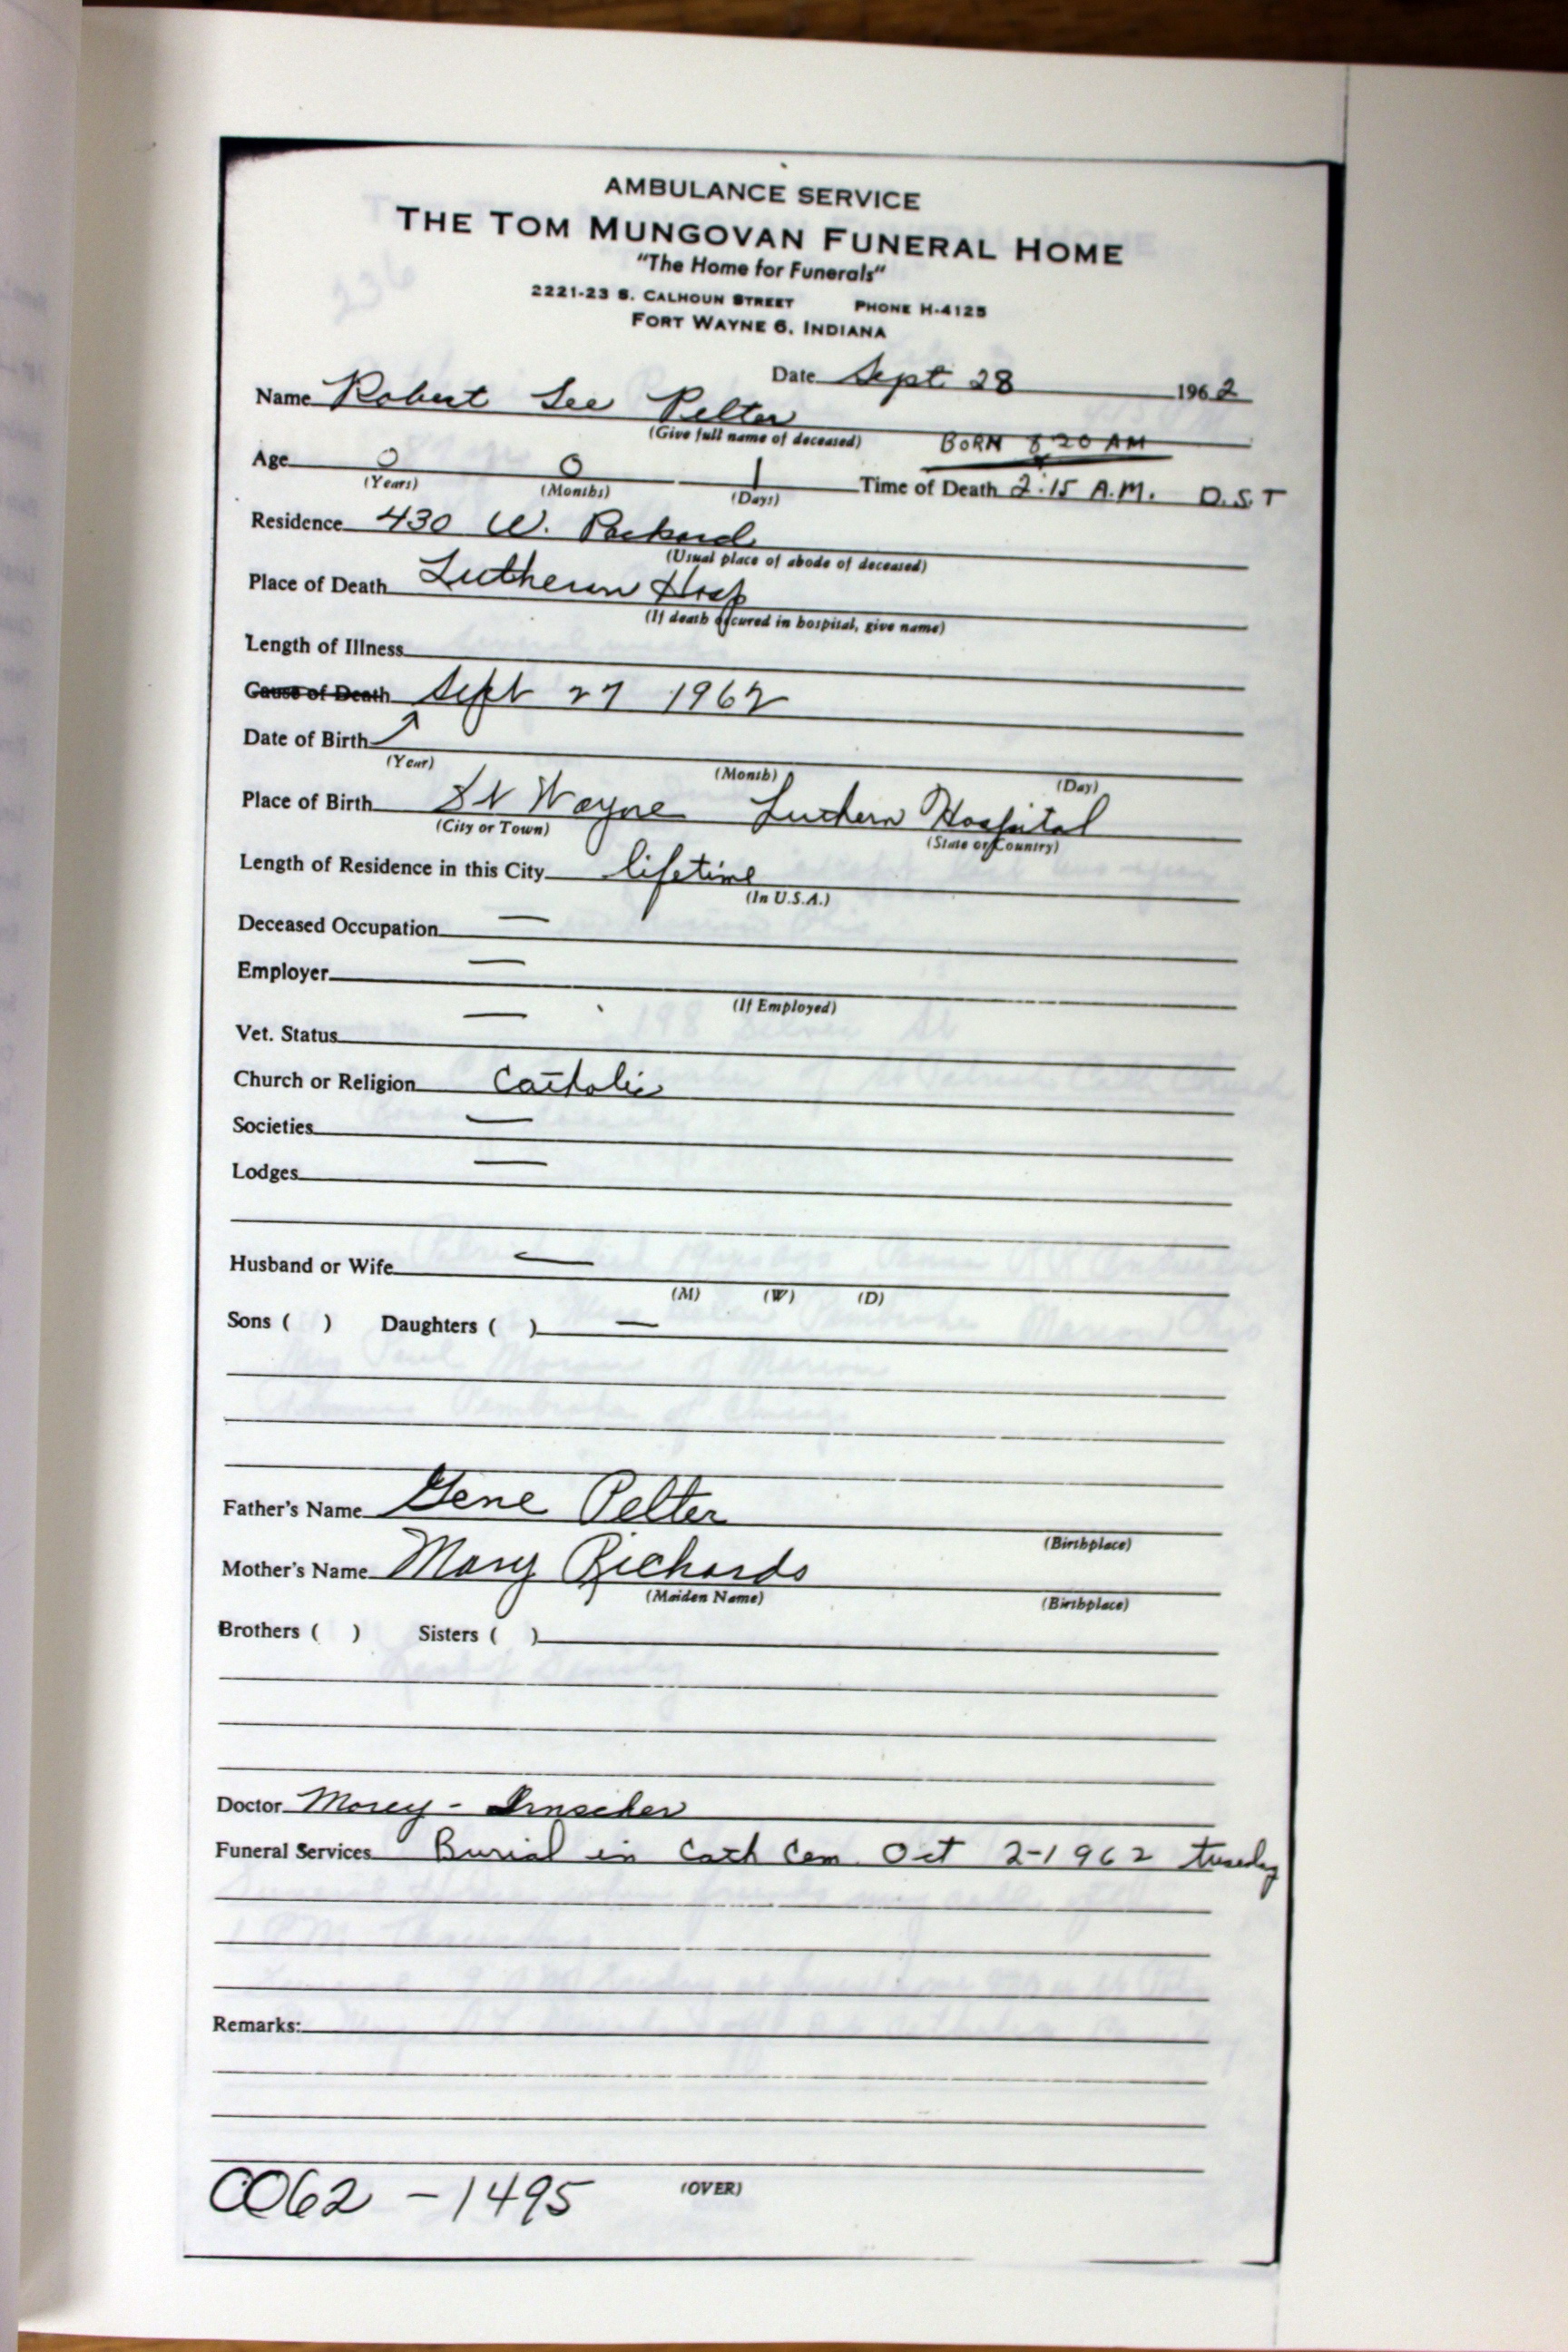 AMBULANCE SERVICE
THE TOM MUNGOVAN FUNERAL HOME
"The Home for Funerals"
2221-23 S. CALHOUN STREET PHONE H-4125
FORT WAYNE 6, INDIANA
Date Sept 28 1962
Name Robert Lee Pelter
(Give full name of deceased) BORN 8 20 AM
Age 0 0 1 Time of Death 2:15 A.M. D.S.T
(Years) (Months) (Days)
Residence 430 W. Packard
(Usual place of abode of deceased)
Place of Death Lutheran Hosp
(If death occured in hospital, give name)
Length of Illness
Cause of Death Sept 27 1962
Date of Birth
(Year) (Month) (Day)
Place of Birth Ft Wayne Luthern Hospital
(City or Town) (State or Country)
Length of Residence in this City lifetime
(In U.S.A.)
Deceased Occupation —
Employer —
(If Employed)
Vet. Status —
Church or Religion Catholic
Societies —
Lodges —
Husband or Wife —
(M) (W) (D)
Sons ( ) Daughters ( ) —
Father's Name Gene Pelter
(Birthplace)
Mother's Name Mary Richards
(Maiden Name) (Birthplace)
Brothers ( ) Sisters ( )
Doctor Morey - Irmscher
Funeral Services Burial in Cath Cem Oct 2-1962 tuesday
Remarks:
(OVER)
CO62 - 1495